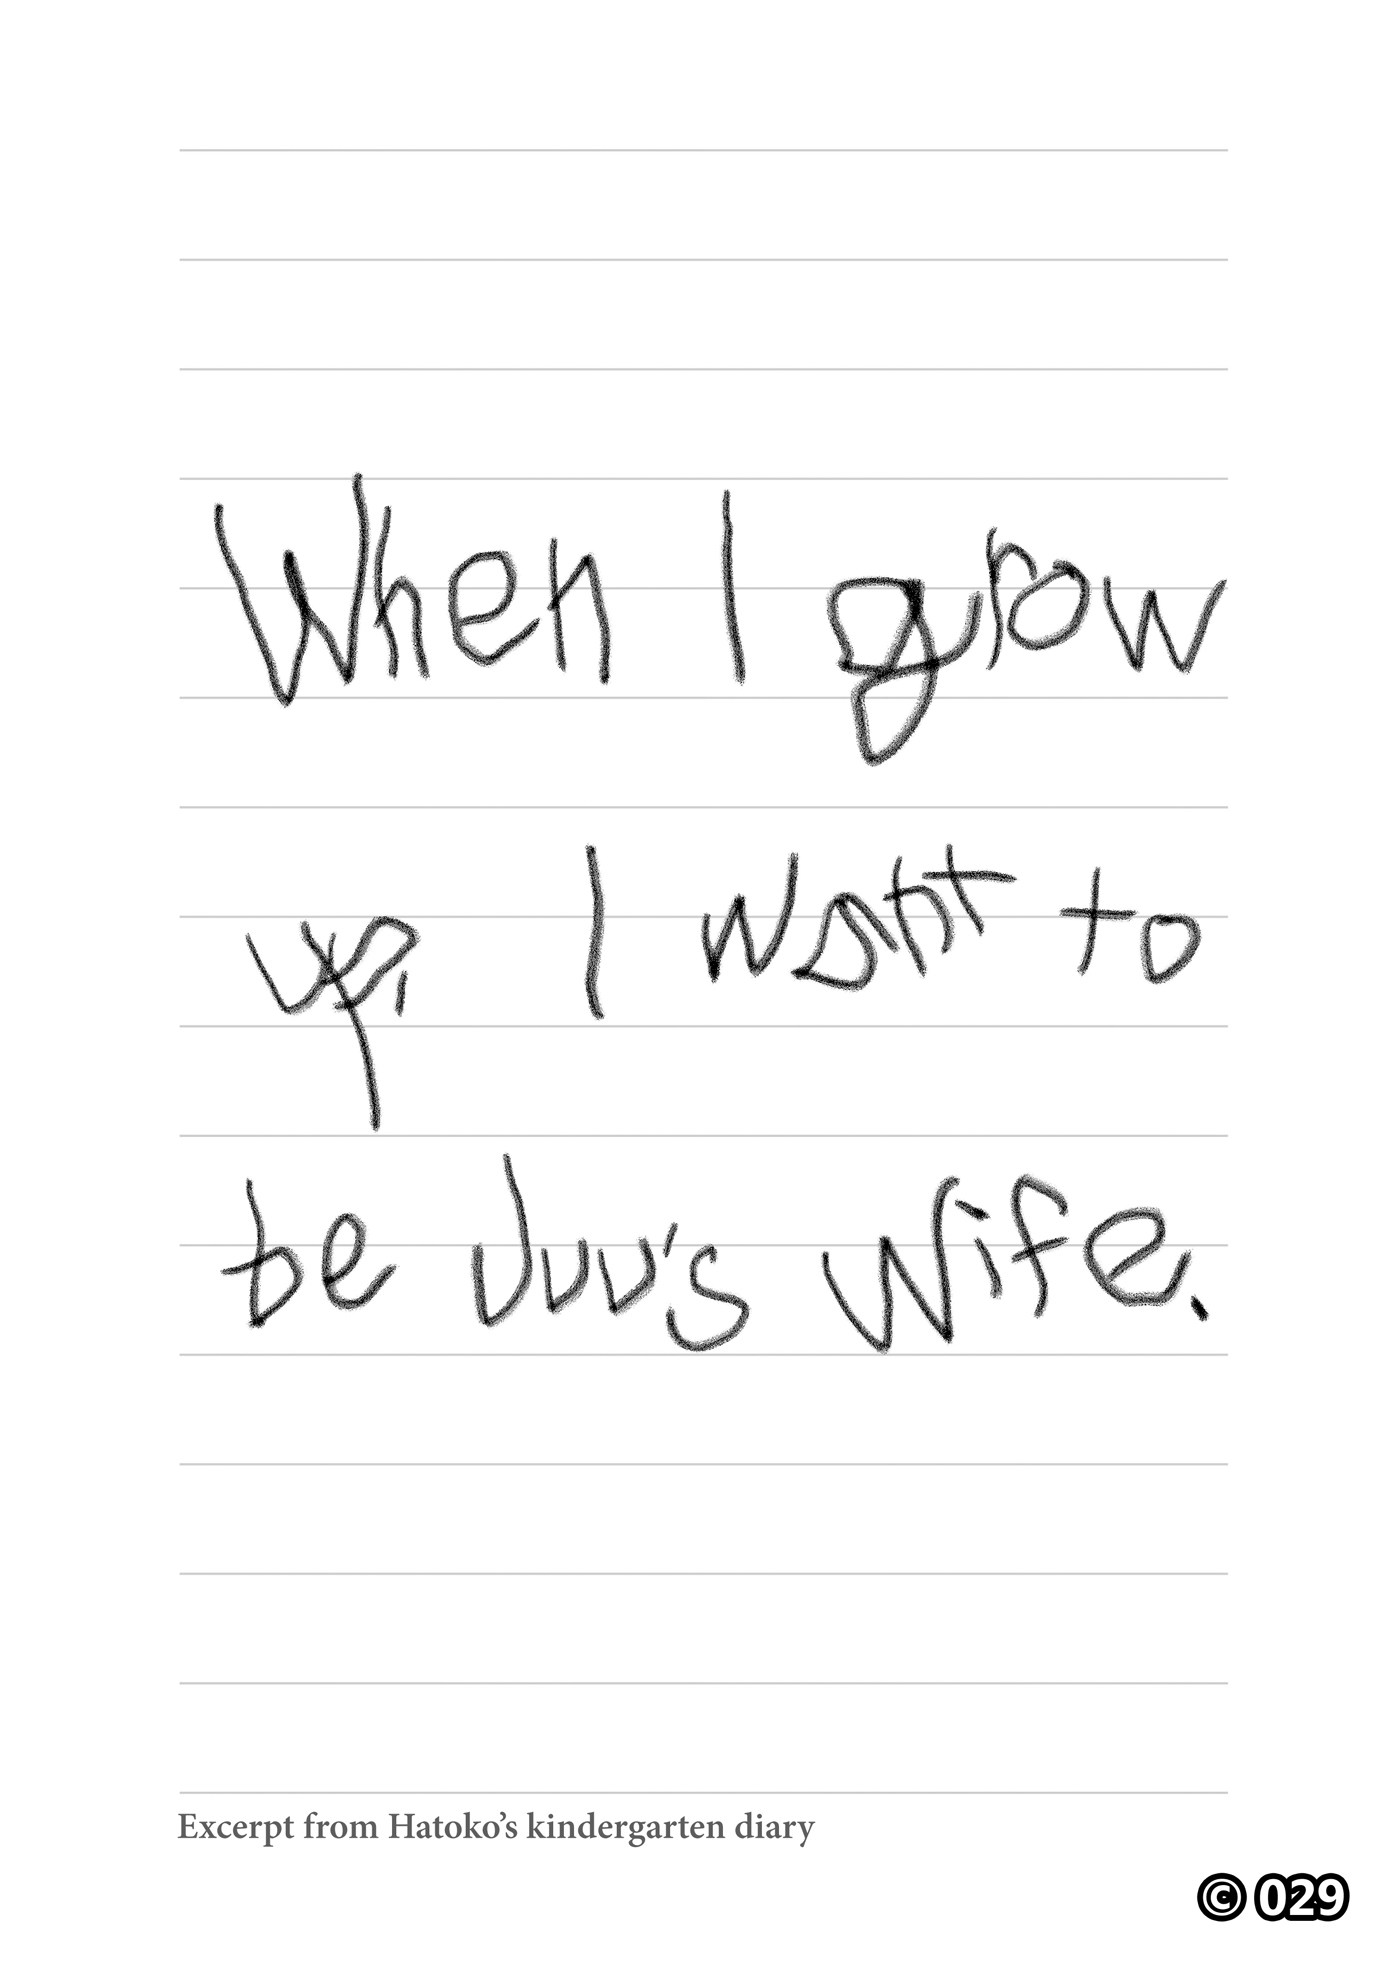 When I grow
up, I want to
be Juu's wife.
Excerpt from Hatoko’s kindergarten diary
© 029